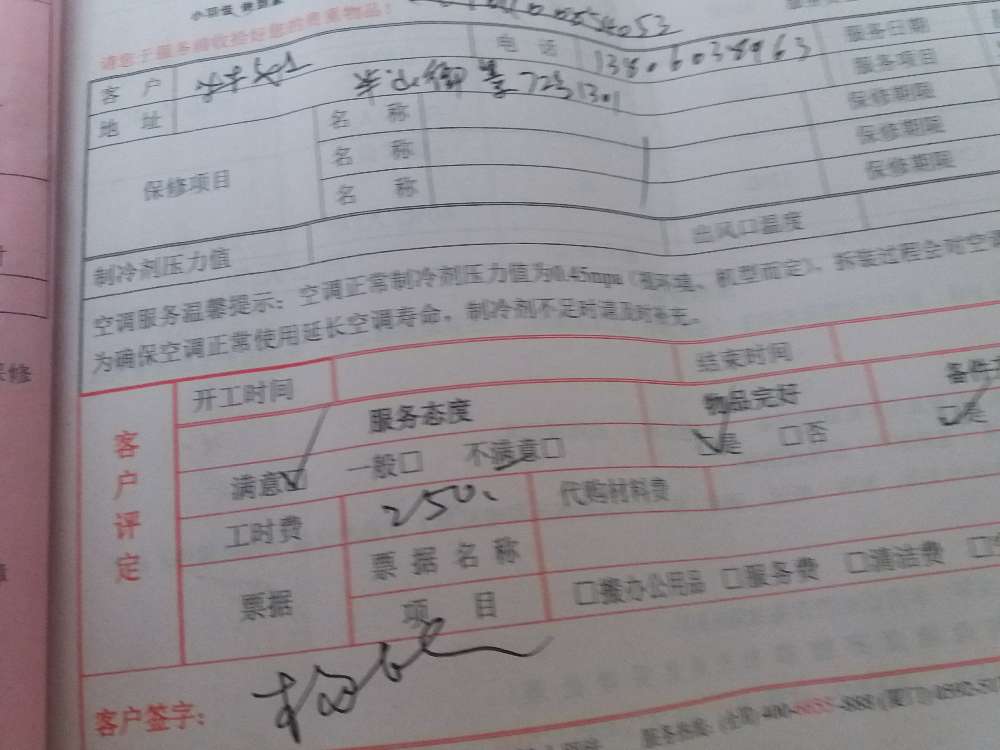 请您于服务前收拾好您的贵重物品！
客 户 电 话 13806038963 服务日期
地 址 7231301 服务项目
保修项目 名 称 保修期限
名 称 保修期限
名 称 保修期限
制冷剂压力值 出风口温度
空调服务温馨提示：空调正常制冷剂压力值为0.45mpa（视环境、机型而定）、拆装过程会对空调
为确保空调正常使用延长空调寿命，制冷剂不足时请及时补充。
客户评定
开工时间 结束时间
服务态度 物品完好
满意☑ 一般□ 不满意□ ☑是 □否 ☑是
工时费 250. 代购材料费
票据 票 据 名 称
项 目 □搬办公用品 □服务费 □清洁费
客户签字：